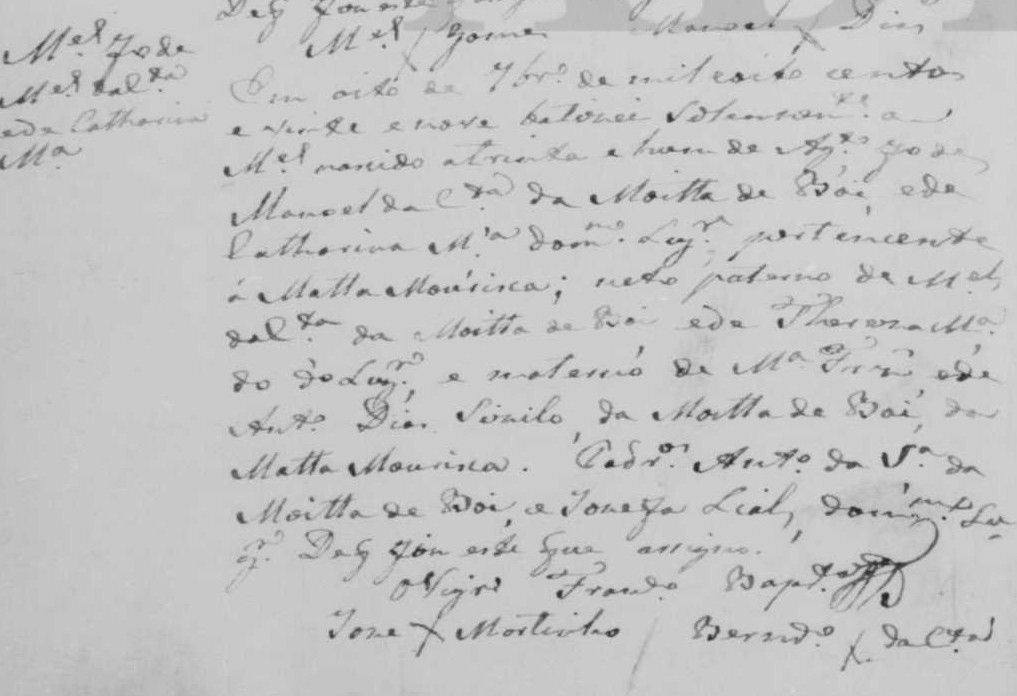 Mel fo de
Mel da Cta
e de Catharina
Ma
Deq fiz este
Mel X Gomes Manoel X Dias
Em oito de 7bro. de mil e oito centos
e vinte e nove batizei solemnemte. a
Mel nascido a trinta e hum de Agto. fo de
Manoel da Cta da Moitta de Boi, e de
Catharina Ma do mmo. Lugr. pertencente
á Matta Mourisca; neto paterno de Mel
da Cta da Moitta de Boi e de Thereza Ma.
do do Lugr., e materno de Ma e de
Anto. Dias da Moitta de Boi, da
Matta Mourisca. Padros. Anto. da Sa. da
Moitta de Boi, e Josefa Lial, do mmo Lu-
gr. Deq fiz este que assigno.
O Vigro Franco. Bapta.
Joze X Mortinho Berndo. X da Cta